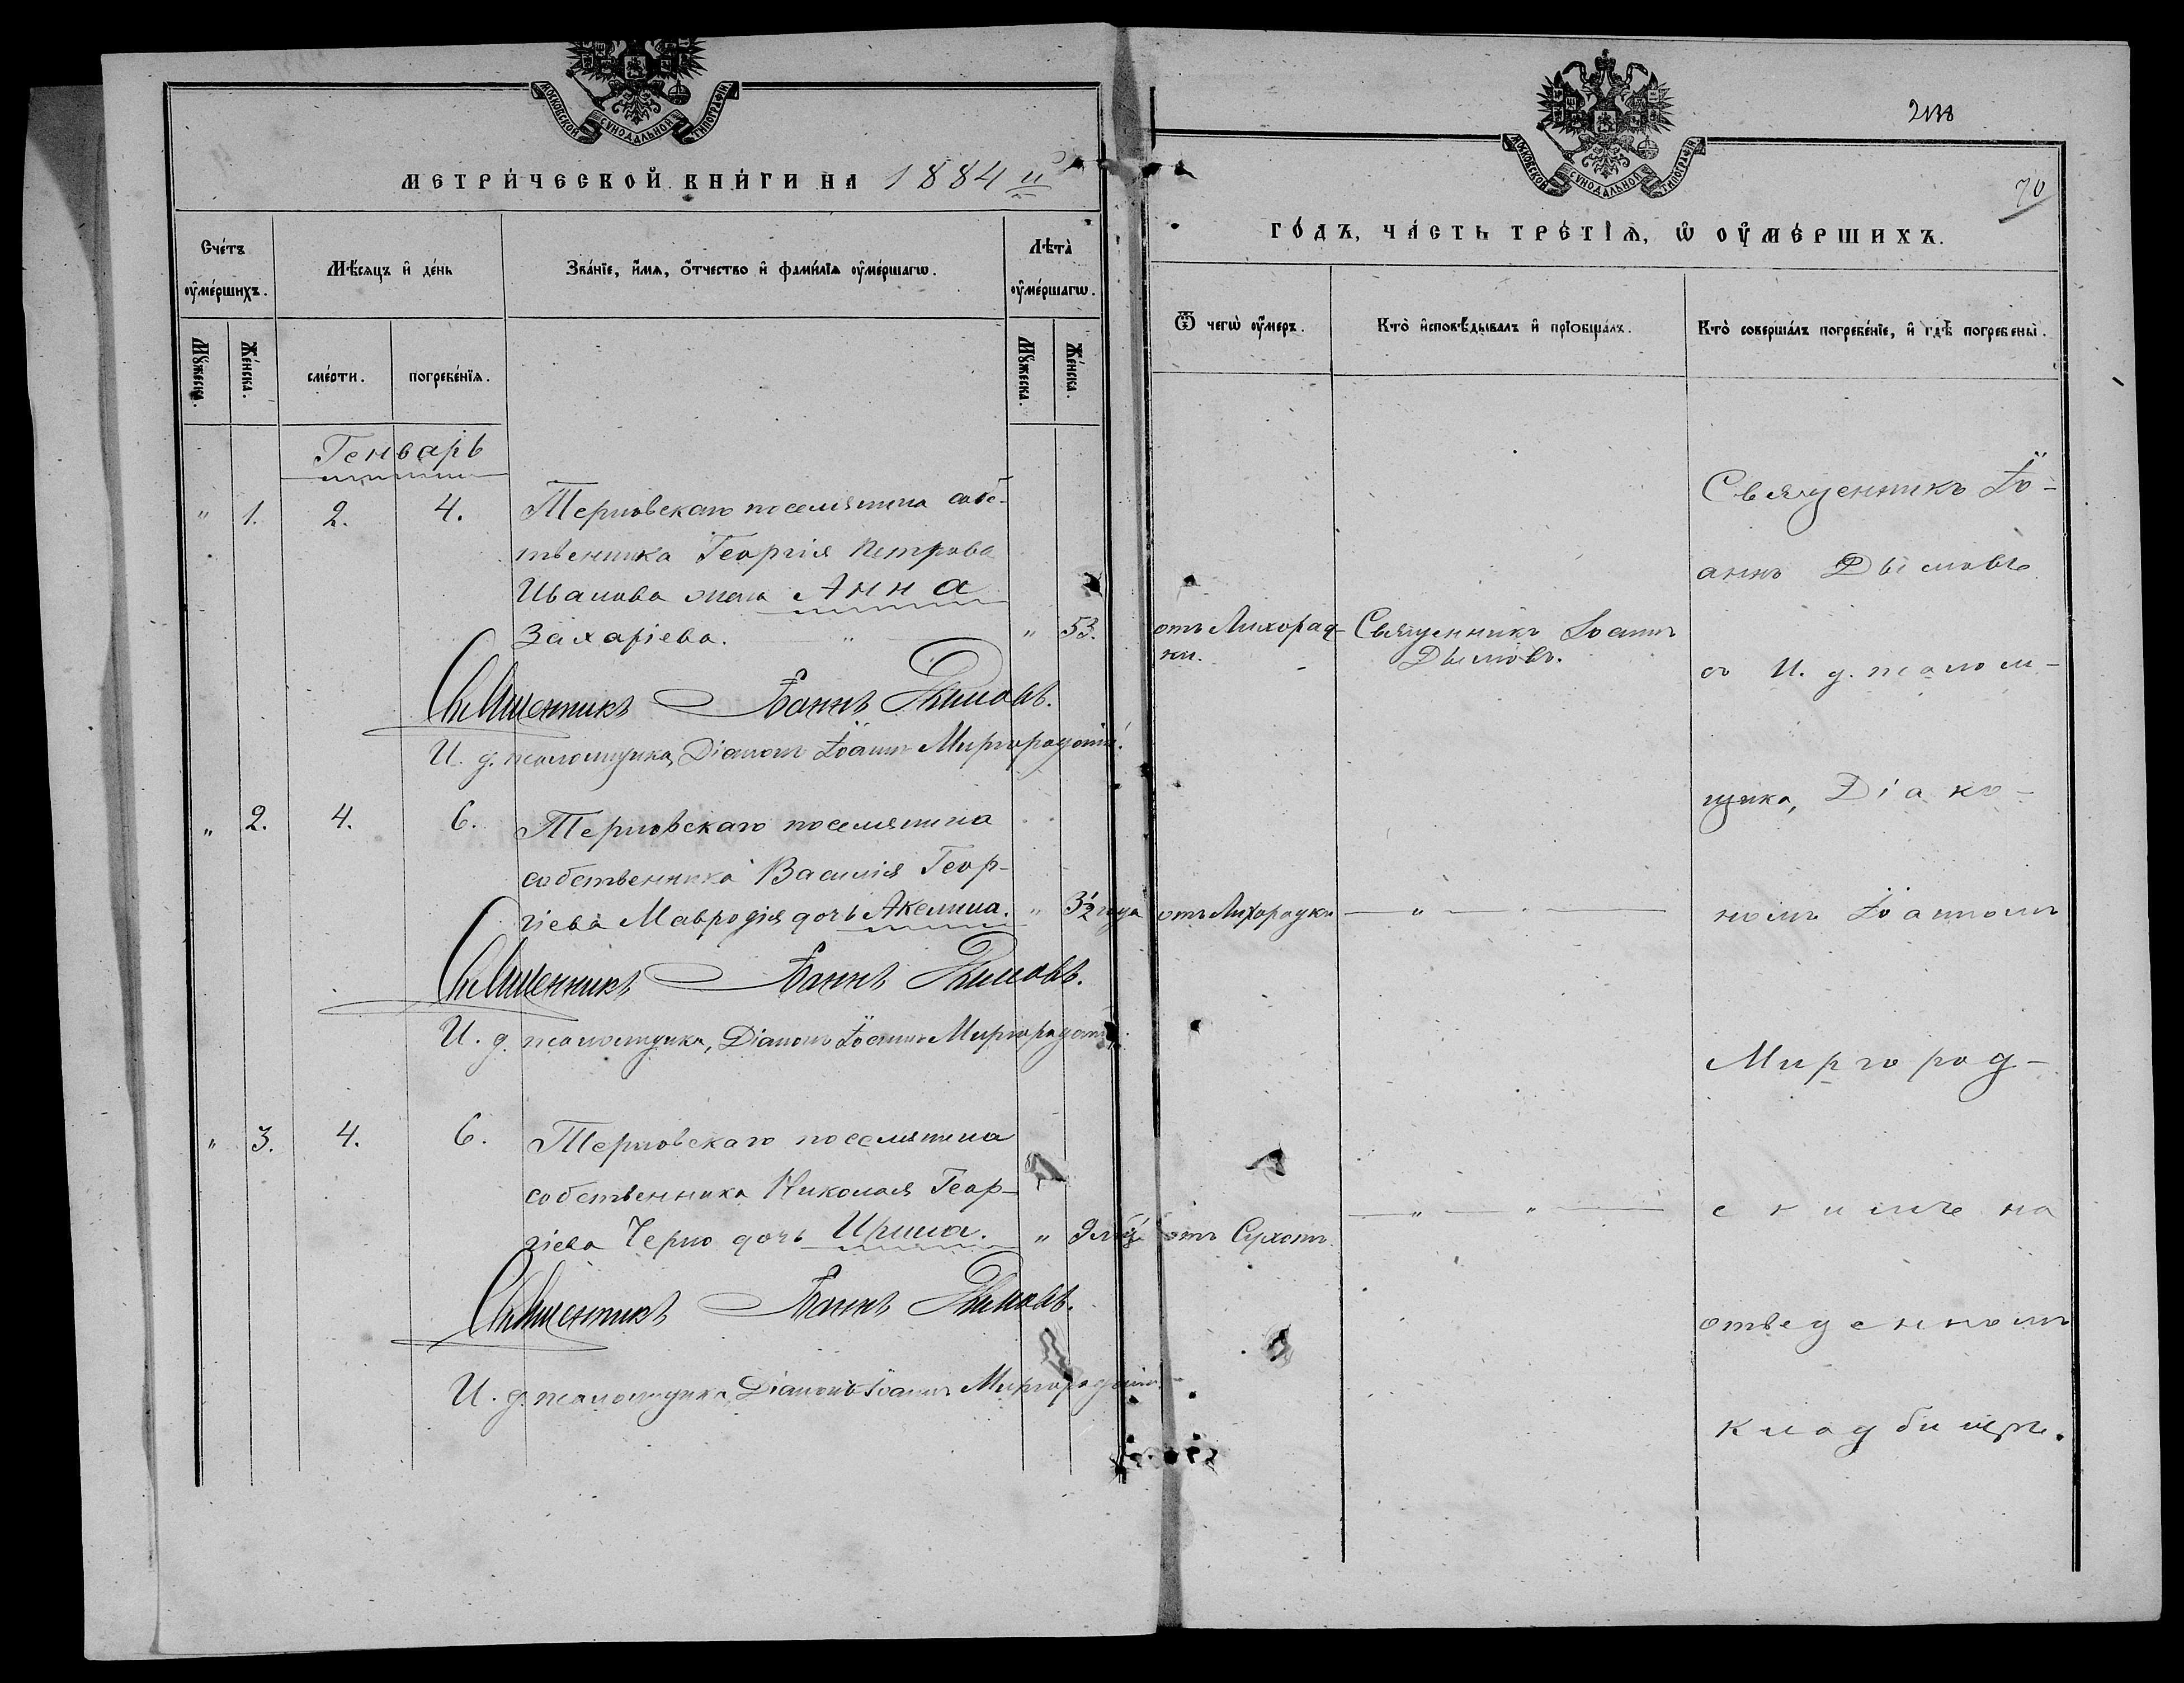 МОСКОВСКОЙ СѴНОДАЛЬНОЙ ТИПОГРАФІИ
МЕТРИ́ЧЕСКОЙ КНИ́ГИ НА 1884 й
Сче́тъ ᲂу҆ме́ршихъ.
Мѣ́сяцъ и҆ де́нь
Зва́нїе, и҆́мѧ, ѻ҆́тчество и҆ фами́лїѧ ᲂу҆ме́ршагѡ.
Лѣ́та ᲂу҆ме́ршагѡ.
Мꙋ́жеска.
Же́нска.
сме́рти.
погребе́нїѧ.
Мꙋ́жеска.
Же́нска.
Генварь
" 1. 2. 4. Терновскаго поселянина собс-
твенника Георгія Петрова
Иванова жена Анна
Захаріева. " " 53.
Священникъ Іоаннъ Дымовъ.
И. д. псаломщика, Діаконъ Іоаннъ Миргородскій.
" 2. 4. 6. Терновскаго поселянина
собственника Василія Геор-
гіева Мавродія дочь Акелина. " 3½ года
Священникъ Іоаннъ Дымовъ.
И. д. псаломщика, Діаконъ Іоаннъ Миргородскій.
" 3. 4. 6. Терновскаго поселянина
собственника Николая Геор-
гіева Черно дочь Ирина. " 9 мѣц.
Священникъ Іоаннъ Дымовъ.
И. д. псаломщика, Діаконъ Іоаннъ Миргородскій.
70
МОСКОВСКОЙ СѴНОДАЛЬНОЙ ТИПОГРАФІИ
ГО́ДЪ, ЧА́СТЬ ТРЕ́ТІѦ, Ѡ ОУ҆МЕ́РШИХЪ.
Ѿ чегѡ̀ ᲂу҆́меръ.
Кто̀ и҆сповѣ́дывалъ и҆ прїобща́лъ.
Кто̀ соверша́лъ погребе́нїе, и҆ гдѣ̀ погребены̀.
отъ Лихорад-
ки.
Священникъ Іоаннъ
Дымовъ.
отъ Лихорадки — " —
отъ Сухотъ — " — " —
Священникъ Іо-
аннъ Дымовъ
съ И. д. псалом-
щика, Діако-
номъ Іоанномъ
Миргород-
скимъ на
отведенномъ
кладбищѣ.